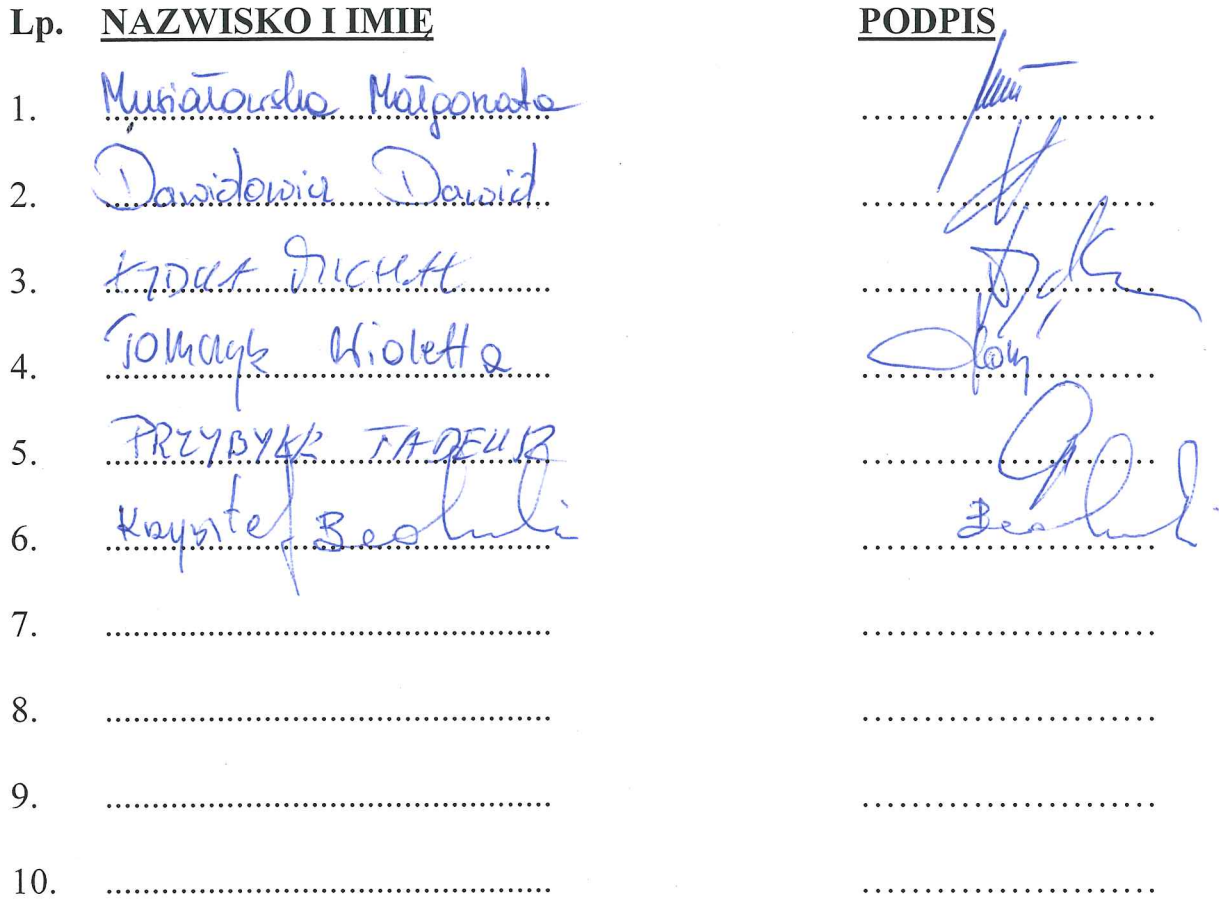 Lp. NAZWISKO I IMIĘ PODPIS
1. Musiałowska Małgorzata
2. Dawidowicz Dawid
3. ŁYDKA MICHAŁ
4. Tomczyk Wioletta
5. PRZYBYŁEK TADEUSZ
6. Krzysztof
7.
8.
9.
10.